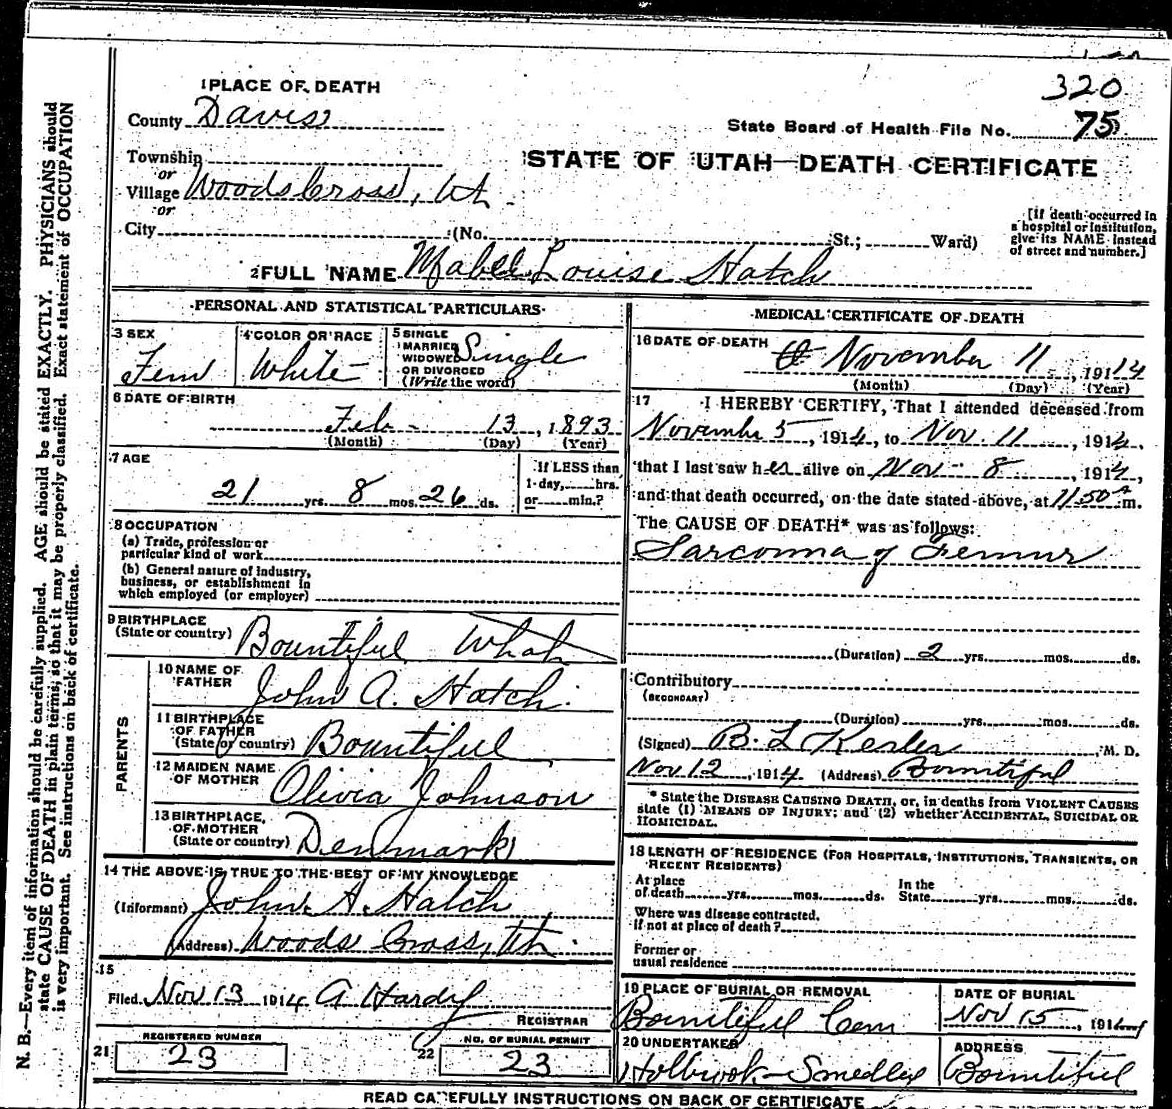 320
1 PLACE OF DEATH
County Davis
State Board of Health File No. 75
STATE OF UTAH—DEATH CERTIFICATE
Township
or
Village Woods Cross, Ut
or
City (No. St.; Ward)
[If death occurred in
a hospital or institution,
give its NAME instead
of street and number.]
2 FULL NAME Mabel Louise Hatch
PERSONAL AND STATISTICAL PARTICULARS
3 SEX
Fem
4 COLOR OR RACE
White
5 SINGLE
MARRIED
WIDOWED
OR DIVORCED
(Write the word)
Single
6 DATE OF BIRTH
Feb - 13, 1893
(Month) (Day) (Year)
7 AGE
21 yrs. 8 mos. 26 ds.
If LESS than
1 day, hrs.
or min.?
8 OCCUPATION
(a) Trade, profession or
particular kind of work
(b) General nature of industry,
business, or establishment in
which employed (or employer)
9 BIRTHPLACE
(State or country) Bountiful
PARENTS
10 NAME OF
FATHER John A. Hatch
11 BIRTHPLACE
OF FATHER
(State or country) Bountiful
12 MAIDEN NAME
OF MOTHER Olivia Johnson
13 BIRTHPLACE
OF MOTHER
(State or country) Denmark
14 THE ABOVE IS TRUE TO THE BEST OF MY KNOWLEDGE
(Informant) John A. Hatch
(Address) Woods Cross, Ut.
15
Filed Nov 13 1914 A Hardy
REGISTRAR
21 REGISTERED NUMBER
23
22 NO. OF BURIAL PERMIT
23
MEDICAL CERTIFICATE OF DEATH
16 DATE OF DEATH
November 11, 1914
(Month) (Day) (Year)
17 I HEREBY CERTIFY, That I attended deceased from
Novemb 5, 1914, to Nov. 11, 1914,
that I last saw her alive on Nov - 8, 1914,
and that death occurred, on the date stated above, at 11.50 A m.
The CAUSE OF DEATH* was as follows:
Sarcoma of Femur
(Duration) 2 yrs. mos. ds.
Contributory
(SECONDARY)
(Duration) yrs. mos. ds.
(Signed) B. L Kesler M. D.
Nov 12, 1914. (Address) Bountiful
* State the DISEASE CAUSING DEATH, or, in deaths from VIOLENT CAUSES
state (1) MEANS OF INJURY; and (2) whether ACCIDENTAL, SUICIDAL OR
HOMICIDAL.
18 LENGTH OF RESIDENCE (FOR HOSPITALS, INSTITUTIONS, TRANSIENTS, OR
RECENT RESIDENTS)
At place
of death yrs. mos. ds.
In the
State yrs. mos. ds.
Where was disease contracted,
if not at place of death?
Former or
usual residence
19 PLACE OF BURIAL OR REMOVAL
Bountiful Cem
DATE OF BURIAL
Nov 15, 1914
20 UNDERTAKER
Holbrook - Smedley
ADDRESS
Bountiful
READ CAREFULLY INSTRUCTIONS ON BACK OF CERTIFICATE
N. B.—Every item of information should be carefully supplied. AGE should be stated EXACTLY. PHYSICIANS should
state CAUSE OF DEATH in plain terms, so that it may be properly classified. Exact statement of OCCUPATION
is very important. See instructions on back of certificate.